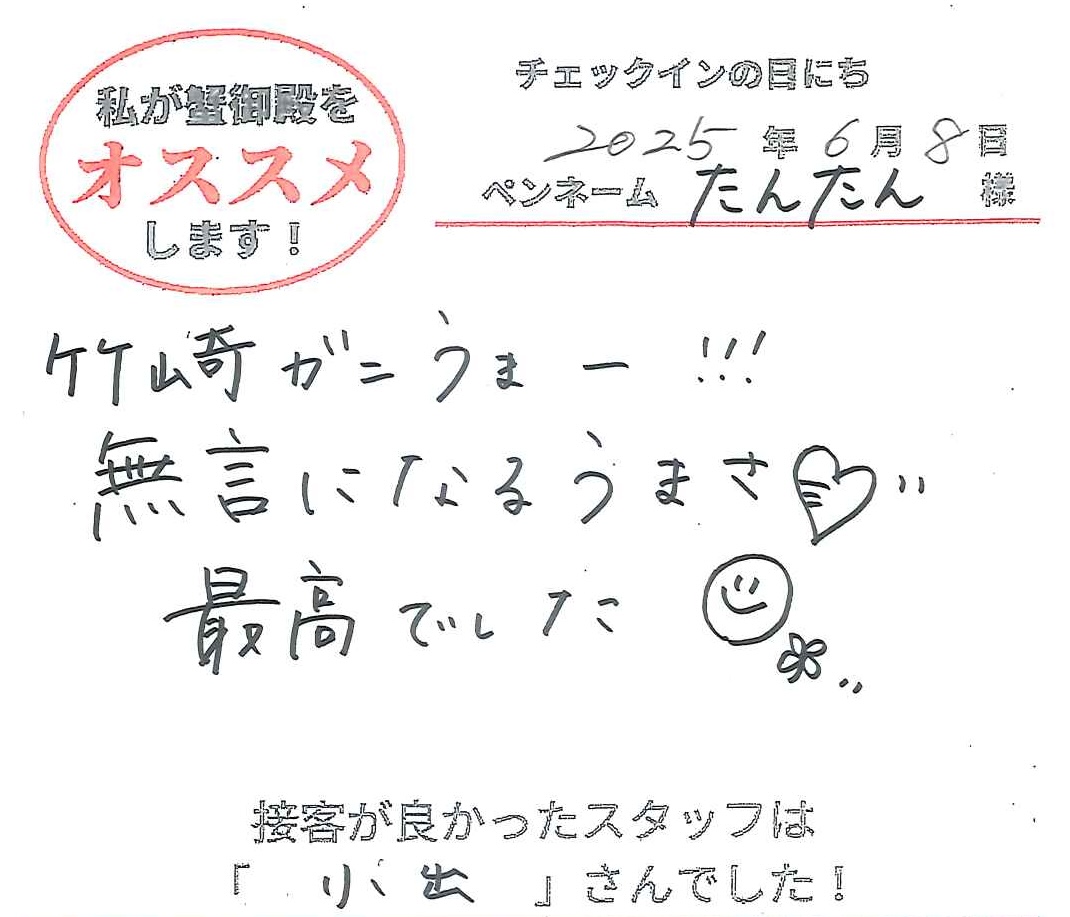 私が蟹御殿を
オススメ
します！
チェックインの日にち
2025年6月8日
ペンネーム たんたん 様
竹崎ガニうまー!!!
無言になるうまさ
最高でした
接客が良かったスタッフは
「小出」さんでした！